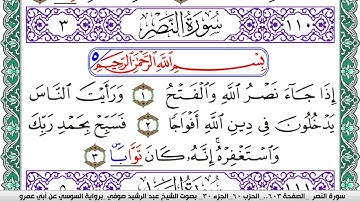 ٣ سُورَةُ النَّصْرِ ١١٠
بِسْمِ اللَّهِ الرَّحْمَٰنِ الرَّحِيمِ
إِذَا جَآءَ نَصْرُ اللَّهِ وَالْفَتْحُ ١ وَرَأَيْتَ النَّاسَ
يَدْخُلُونَ فِى دِينِ اللَّهِ أَفْوَاجًا ٢ فَسَبِّحْ بِحَمْدِ رَبِّكَ
وَاسْتَغْفِرْهُ إِنَّهُ كَانَ تَوَّابًا ٣
سورة النصر الصفحة ٦٠٣... الحزب ٦٠ الجزء ٣٠ بصوت الشيخ عبد الرشيد صوفي برواية السوسي عن أبي عمرو